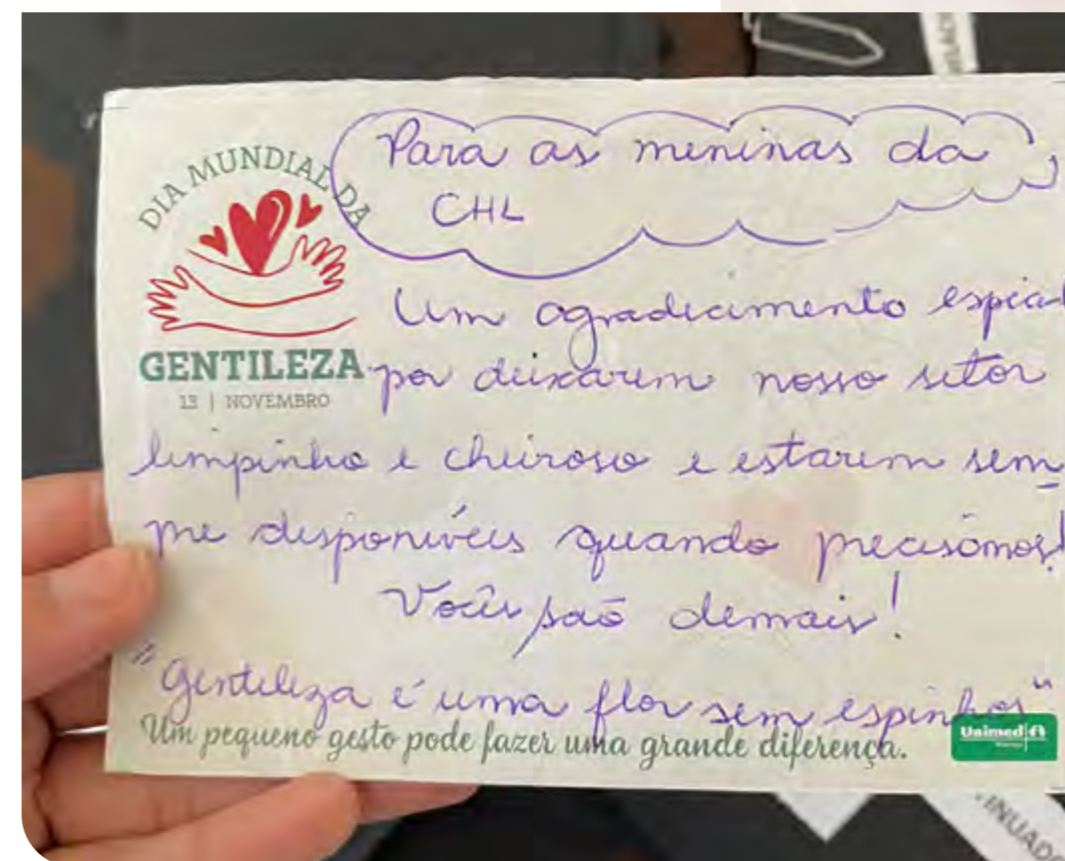 DIA MUNDIAL DA
GENTILEZA
13 | NOVEMBRO
Para as meninas da
CHL
Um agradecimento espcial
por deixarem nosso setor
limpinho e cheiroso e estarem sem
pre disponivéis quando precisamos!
Vocês são demais!
"Gentileza é uma flor sem espinhos"
Um pequeno gesto pode fazer uma grande diferença.
Unimed